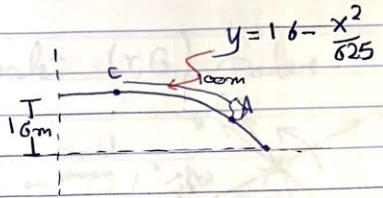 y = 16 - x²/625
C
100m
A
16m